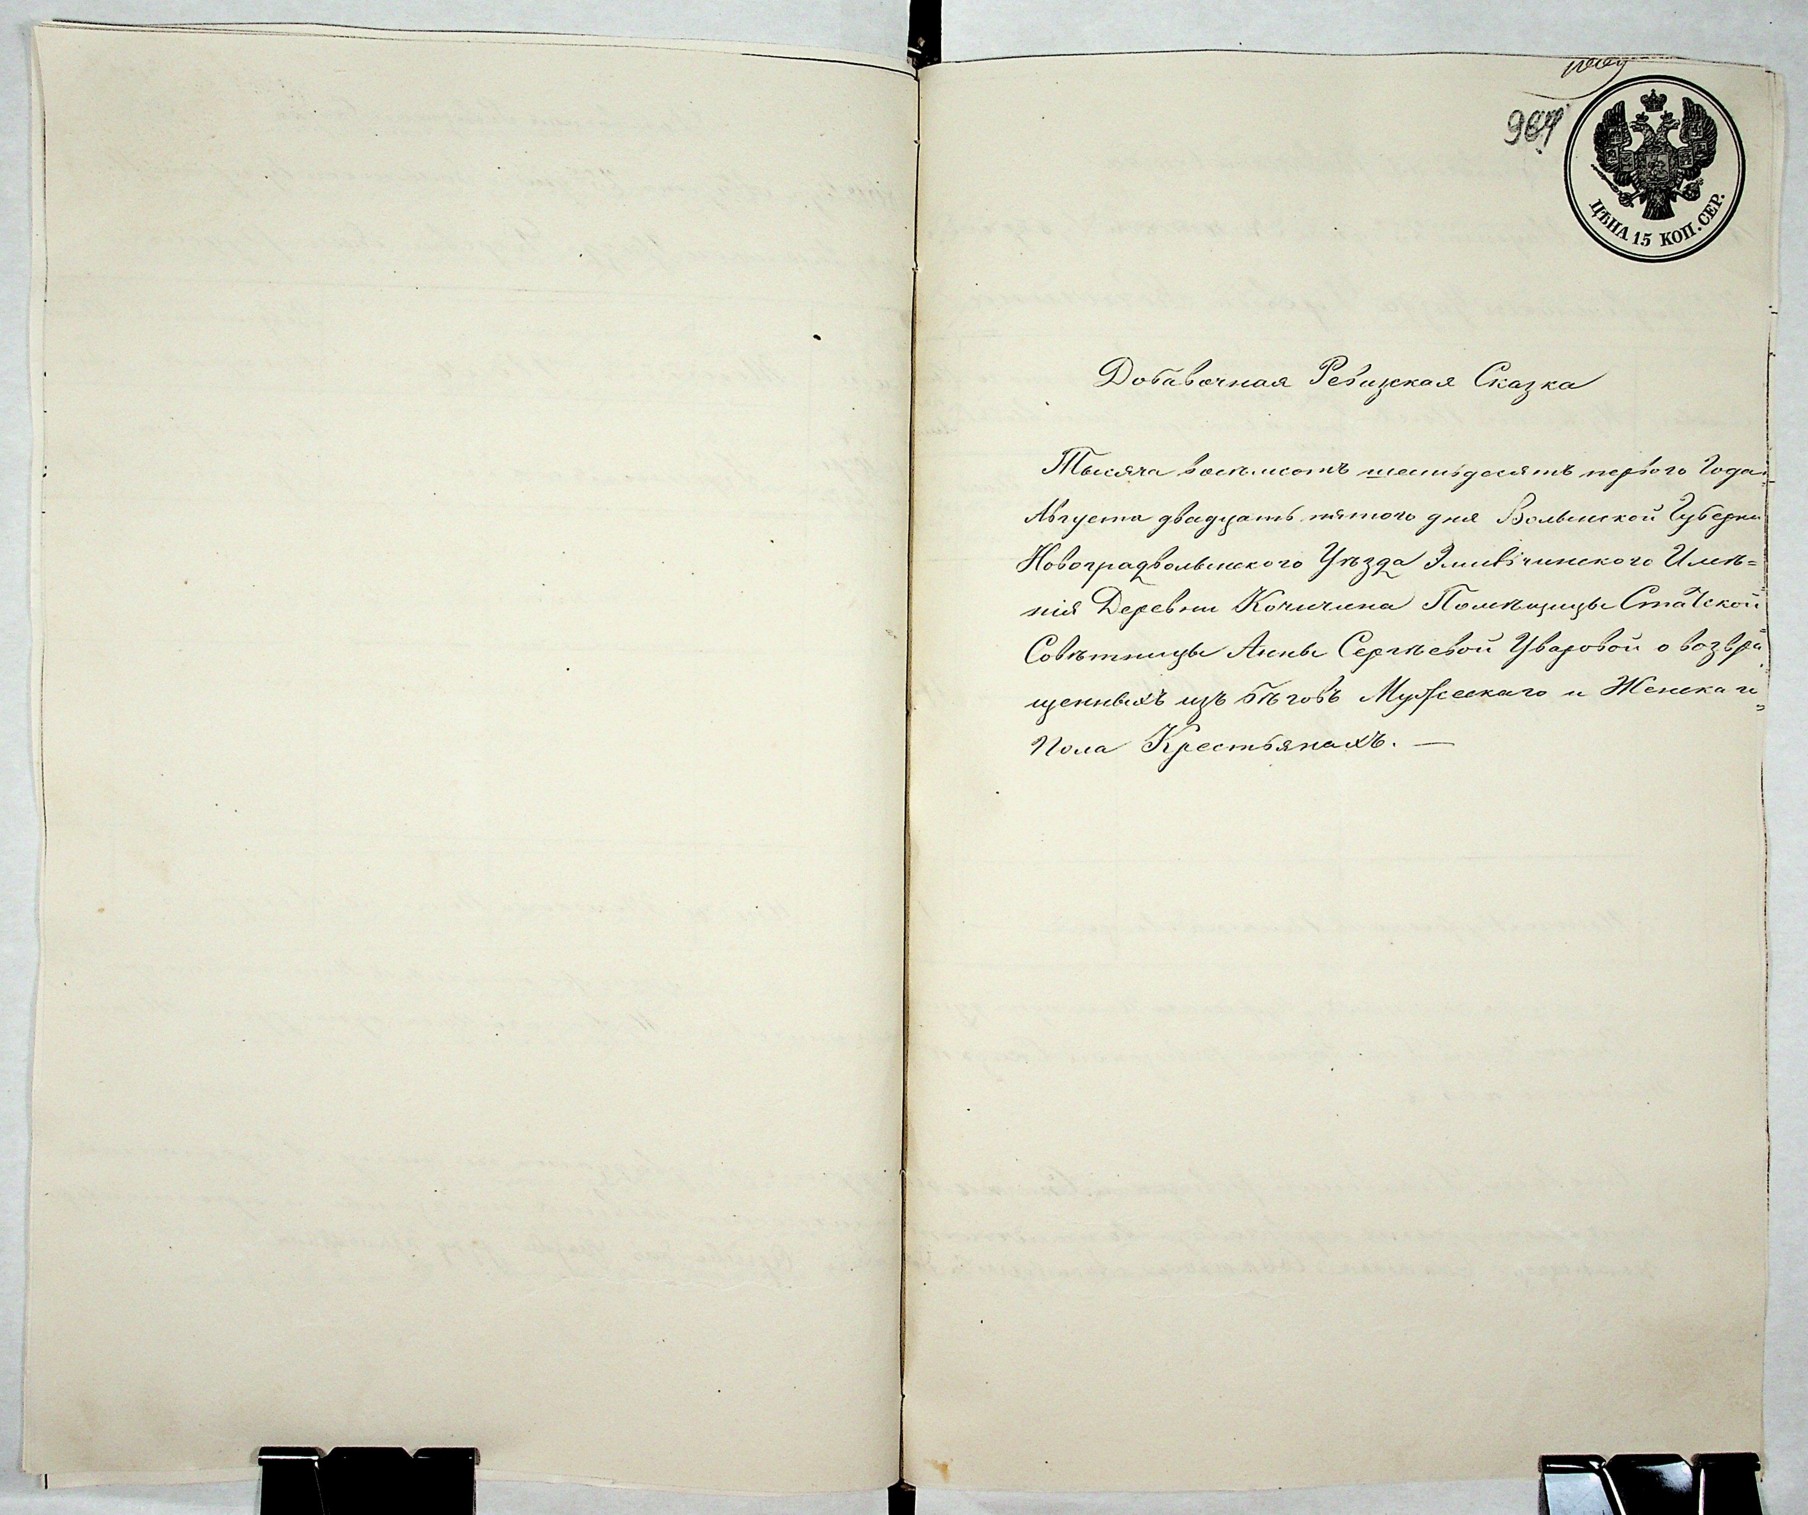 964
ЦѢНА 15 КОП. СЕР.
Добавочная Ревизская Сказка
Тысяча восѣмсотъ шестьдесятъ первого Года
Августа двадцать пятого дня Волынской Губерни
Новоградволынского Уѣзда Эмильчинского Имѣ=
нія Деревни Кочичина Помѣщицы Статской
Совѣтницы Анны Сергѣевой Уваровой о возвра=
щенныхъ изъ бѣговъ Мужескаго и Женскаго
Пола Крестьянахъ. —